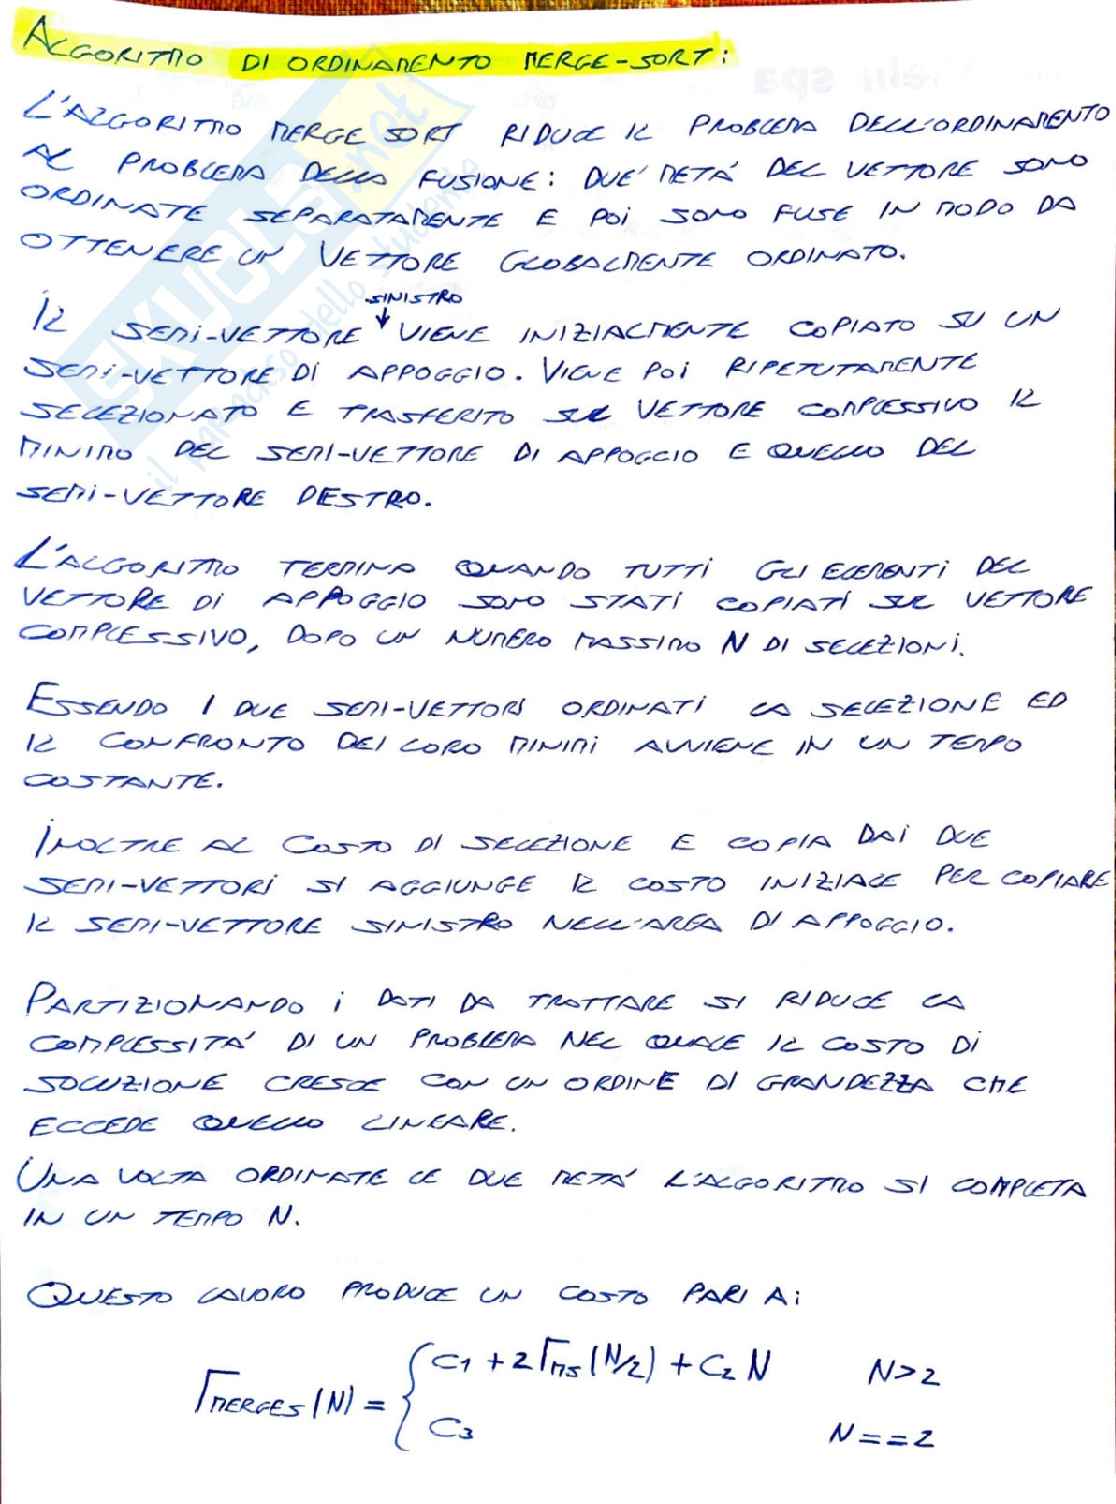 ALGORITMO DI ORDINAMENTO MERGE-SORT:
L'ALGORITMO MERGE SORT RIDUCE IL PROBLEMA DELL'ORDINAMENTO
AL PROBLEMA DELLA FUSIONE: DUE METÀ DEL VETTORE SONO
ORDINATE SEPARATAMENTE E POI SONO FUSE IN MODO DA
OTTENERE UN VETTORE GLOBALMENTE ORDINATO.
SINISTRO
IL SEMI-VETTORE VIENE INIZIALMENTE COPIATO SU UN
SEMI-VETTORE DI APPOGGIO. VIENE POI RIPETUTAMENTE
SELEZIONATO E TRASFERITO SUL VETTORE COMPLESSIVO IL
MINIMO DEL SEMI-VETTORE DI APPOGGIO E QUELLO DEL
SEMI-VETTORE DESTRO.
L'ALGORITMO TERMINA QUANDO TUTTI GLI ELEMENTI DEL
VETTORE DI APPOGGIO SONO STATI COPIATI SUL VETTORE
COMPLESSIVO, DOPO UN NUMERO MASSIMO N DI SELEZIONI.
ESSENDO I DUE SEMI-VETTORI ORDINATI LA SELEZIONE ED
IL CONFRONTO DEI LORO MINIMI AVVIENE IN UN TEMPO
COSTANTE.
INOLTRE AL COSTO DI SELEZIONE E COPIA DAI DUE
SEMI-VETTORI SI AGGIUNGE IL COSTO INIZIALE PER COPIARE
IL SEMI-VETTORE SINISTRO NELL'AREA DI APPOGGIO.
PARTIZIONANDO I DATI DA TRATTARE SI RIDUCE LA
COMPLESSITA' DI UN PROBLEMA NEL QUALE IL COSTO DI
SOLUZIONE CRESCE CON UN ORDINE DI GRANDEZZA CHE
ECCEDE QUELLO LINEARE.
UNA VOLTA ORDINATE LE DUE METÀ L'ALGORITMO SI COMPLETA
IN UN TEMPO N.
QUESTO LAVORO PRODUCE UN COSTO PARI A:
Γ_MERGES(N) = { C1 + 2Γ_MS(N/2) + C2 N N>2
C3 N==2
SKUOLA.net
il paradiso dello studente